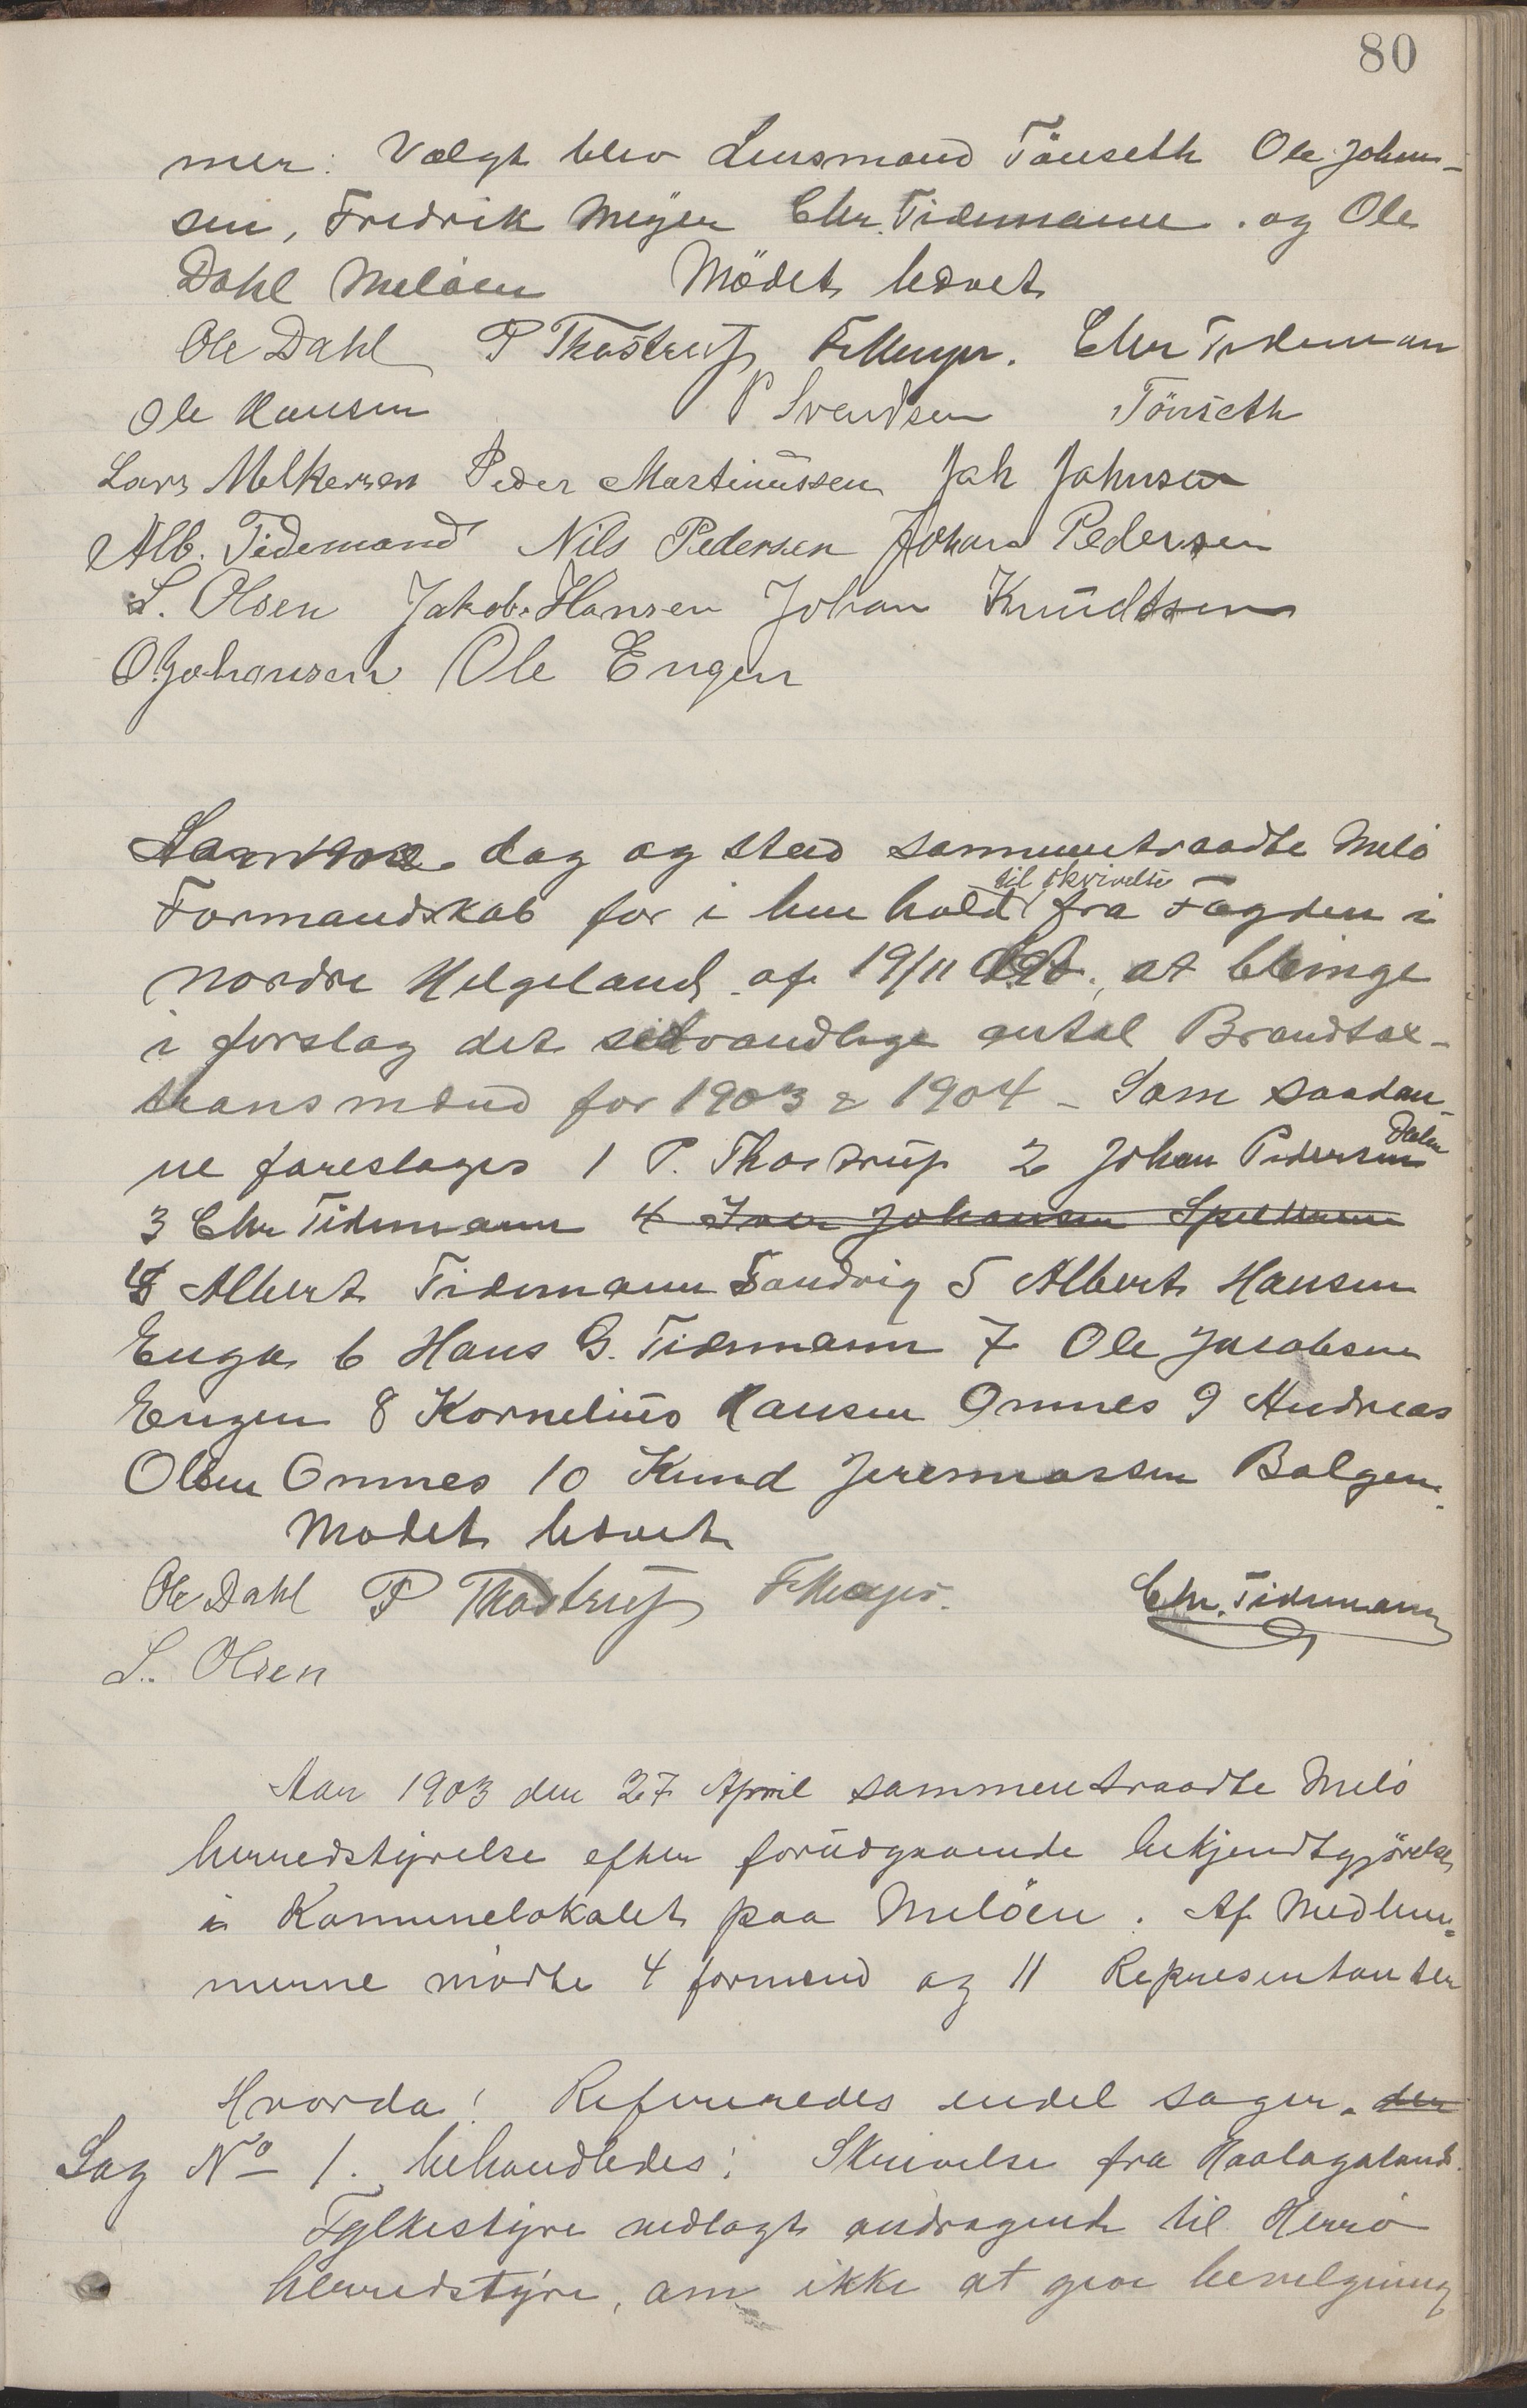 80
mer: Valgt blev Lensmand Tönseth Ole Johan-
sen, Fredrik Meyer Chr. Tidemann. og Ole
Dahl Meløen Mödet hævet
Ole Dahl P Thostrup F Meyer. Chr Tideman
Ole Hansen P Svendsen Tönseth
Lars Melkersen Peder Martinussen Joh Johnsen
Alb. Tidemand Nils Pedersen Johan Pedersen
L. Olsen Jakob. Hansen Johan Knudtsen
O Johansen Ole Engen
Aar 1902 dag og sted sammentraadte Melö
til skrivelse
Formandskab for i henhold fra Fogden i
nordre Helgeland af 19/11 at bringe
i forslag det sedvandlige antal Brandtax-
transmænd for 1903 & 1904 - Som saadan-
Dalen
ne foreslages 1 P. Thostrup 2 Johan Pedersen
3 Chr Tidemann 4 Iver Johansen Spilderen
4 Albert Tidemann Sandvig 5 Albert Hansen
Enga 6 Hans G. Tidemann 7 Ole Jacobsen
Engen 8 Kornelius Hansen Omnes 9 Andreas
Olsen Omnes 10 Knud Jeremiassen Bolgen.
Mödet hævet
Ole Dahl P Thostrup F Meyer. Chr. Tidemann
L. Olsen
Aar 1903 den 27 April sammentraadte Melö
herredstyrelse efter forudgaaende bekjendtgjörelse
i Komunelokalet paa Melöen. Af Medlem-
merne mödte 4 formænd og 11 Representanter
Hvorda! Refereredes endel sager. der
Sag No 1. behandledes: Skrivelse fra Haalogalands
Fylkestyre vedlagt andragende til Herrö
herredstyre, om ikke at give bevilgning